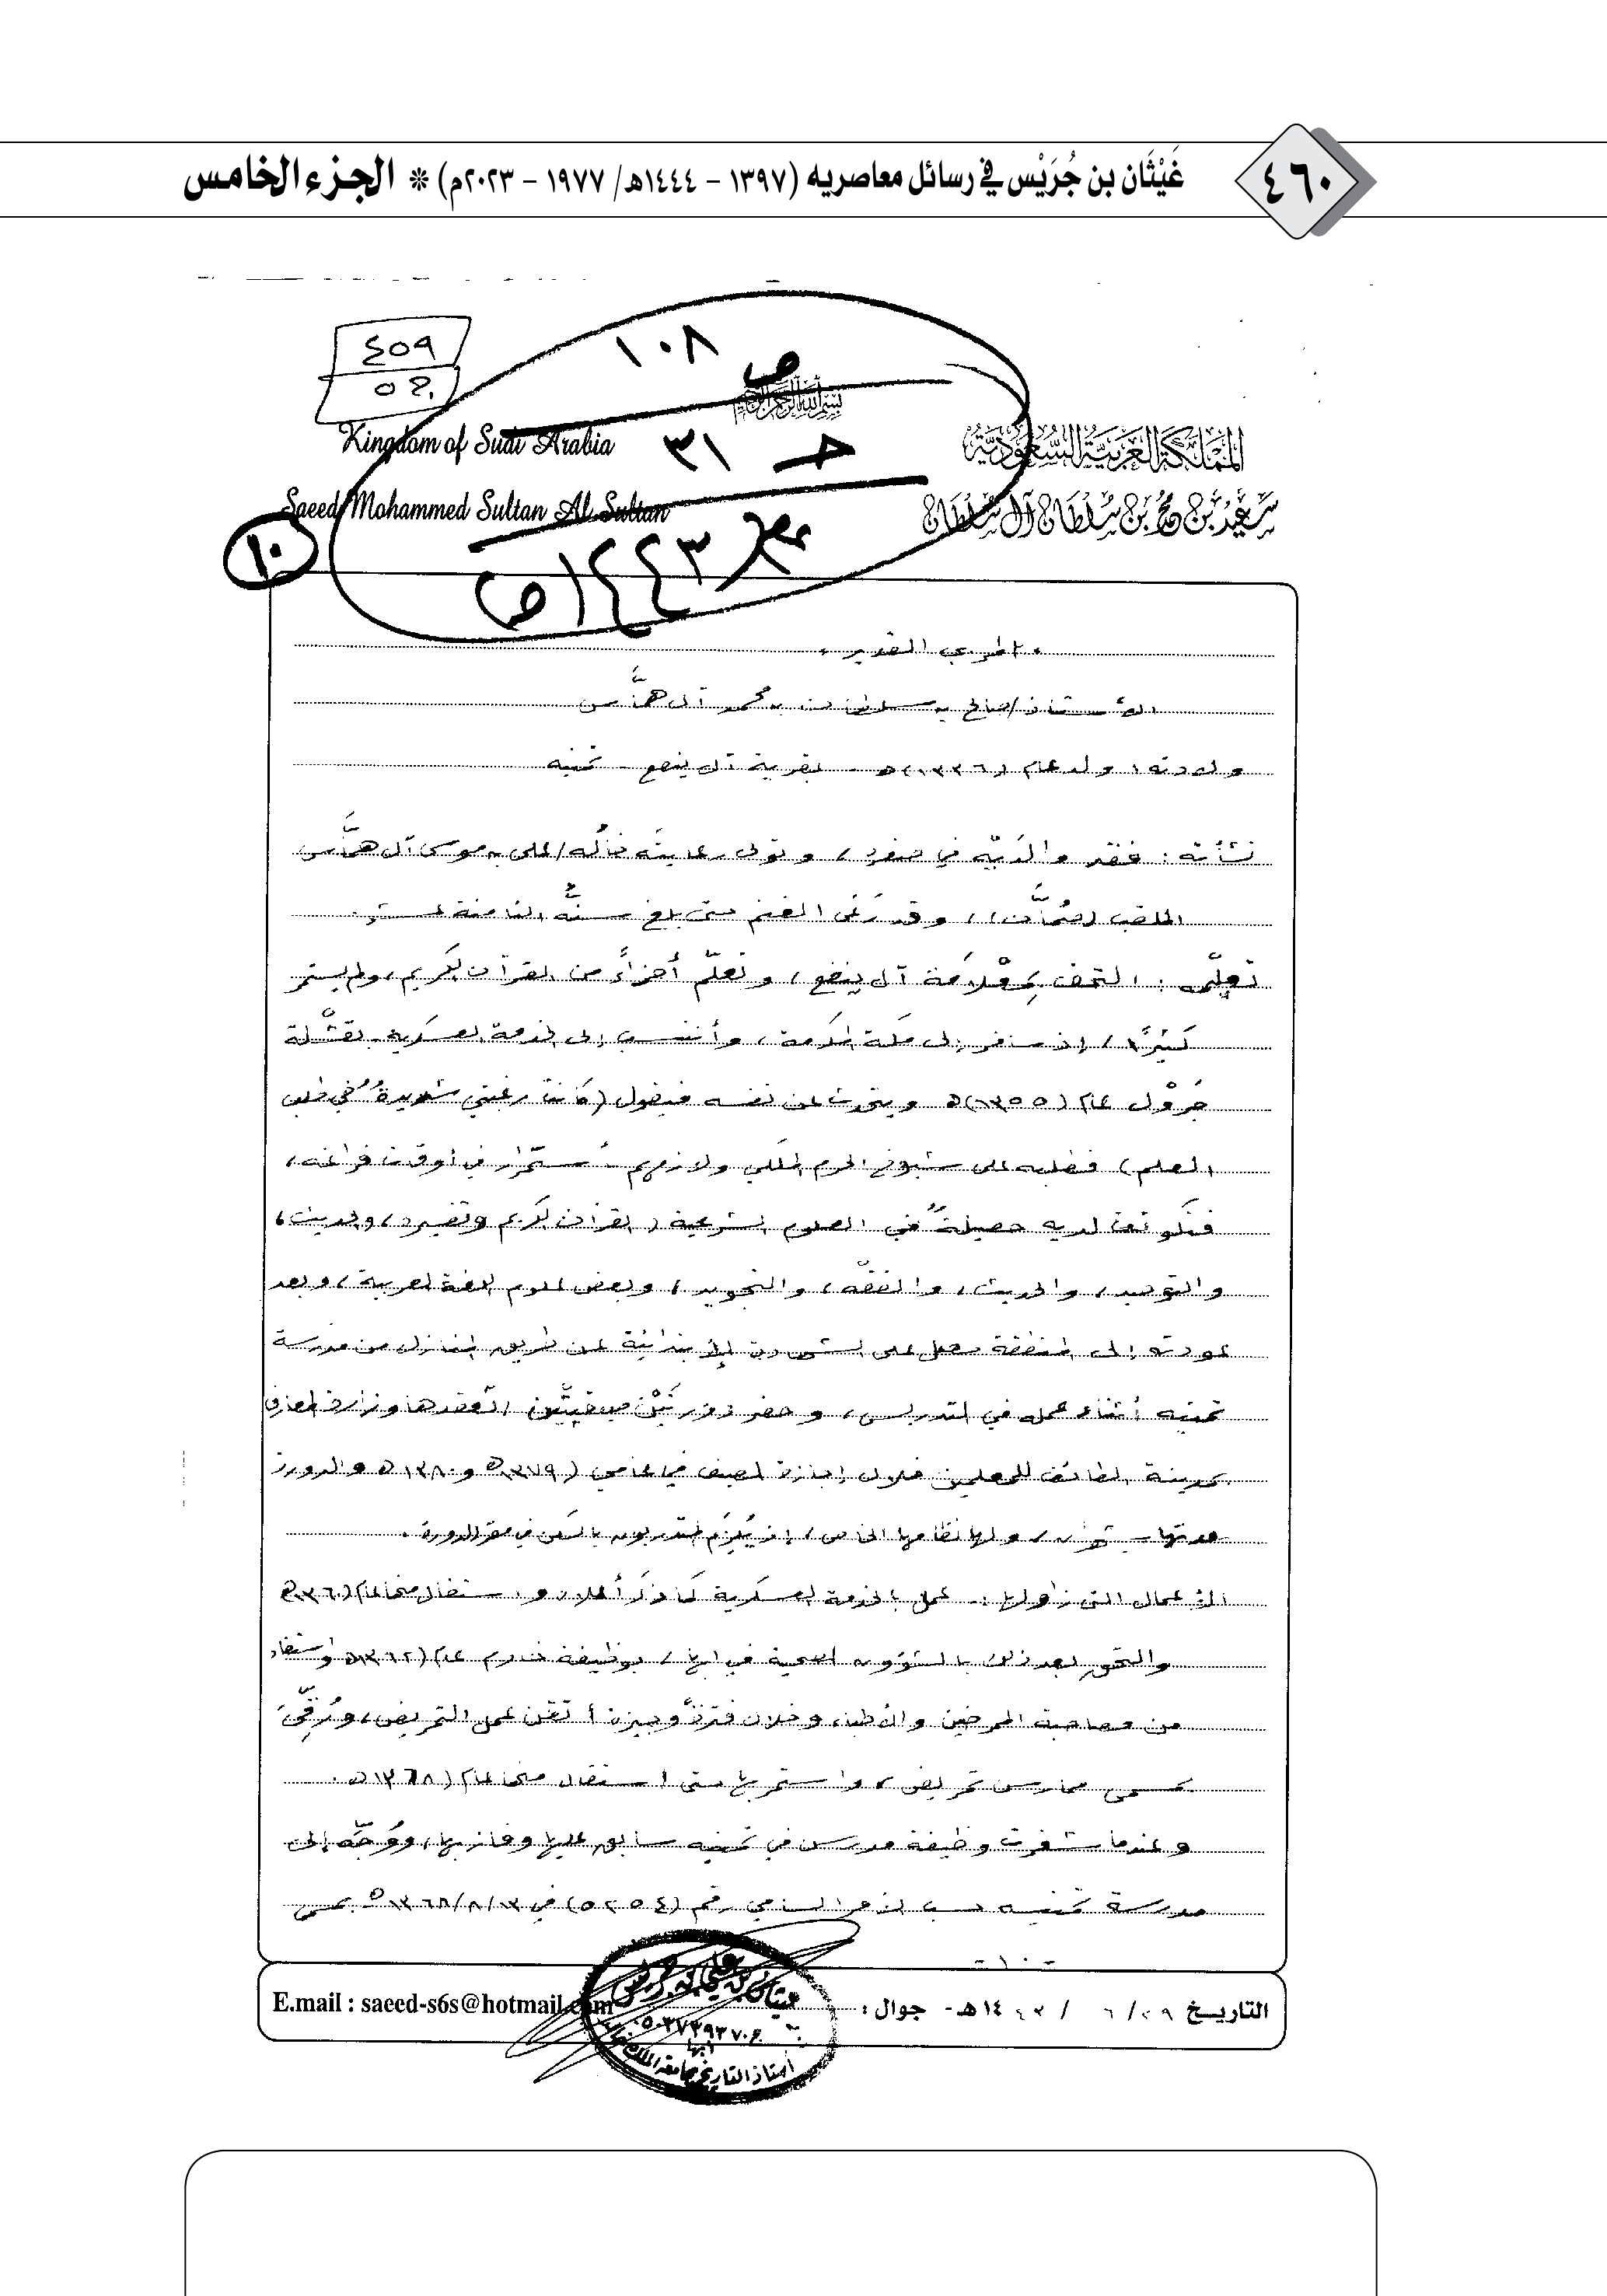 ٤٦٠
غَيْثَان بن جُرَيْس في رسائل معاصريه (١٣٩٧ - ١٤٤٤هـ/ ١٩٧٧ - ٢٠٢٣م) * الجزء الخامس
٤٥٩
٥٢٠
ص ١٠٨
بسم الله الرحمن الرحيم
المملكة العربية السعودية
Kingdom of Sudi Arabia
حـ ٣١
سعيد بن محمد بن سلطان آل سلطان
Saeed Mohammed Sultan Al Sultan
١٤٤٣هـ
١٠
المربي القدير
الأستاذ/صالح بن سلطان بن محمد آل همَّاس
ولادته: ولد عام (١٣٣٦)هـ - بقرية آل ينفع - تمنيه
نشأته: فقد والديّه في صغره، وتولى رعايته خاله/علي بن موسى آل همَّاس
الملقب ، وقد رَعَى الغنم حتى بلغ سنُّه الثامنة عشر.
تعلّمه: التحق بمعْلامة آل ينفع، وتعلّم أجزاءً من القرآن الكريم، ولم يستمر
كثيرًا، إذ سافر إلى مكة المكرمة، وأنتسب إلى الخدمة العسكرية بقشلة
جَرْوَل عام (١٣٥٥)هـ ويتحدث عن نفسه فيقول (كانت رغبتي شديدةً في طلب
العلم) فطلبه على شيوخ الحرم المكي ولازمهم باستمرار في أوقات فراغه،
فتكونت لديه حصيلةً في العلوم الشرعية (القرآن الكريم وتفسيره، والحديث،
والتوحيد، والحديث، والفقه، والتجويد، وبعض علوم اللغة العربية، وبعد
عودته إلى المنطقة حصل على الشهادة الإبتدائية عن طريق المنازل من مدرسة
تمنيه أثناء عمله في التدريس، وحضر دورتَيْن صيفيّتين تعقدها وزارة المعارف
بمدينة الطائف للمعلمين خلال إجازة الصيف في عامي (١٣٧٩هـ و١٣٨٠هـ والدورة
مدتها شهران، ولها نظامها الخاص، إذ يُلزَم المتدربون بالسكن في مقر الدورة.
الأعمال التي زاولها: عمل بالخدمة العسكرية كما ذكر أعلاه واستقال منها عام (١٣٦٠هـ
والتحق بعد ذلك بالشؤون الصحية في أبها، بوظيفة خادم عام (١٣٦٢هـ واستفاد
من مصاحبة الممرضين والأطباء وخلال فترةً وجيزة أتقن عمل التمريض، ورُقّيَ
بمسمى ممارس تمريض، واستمر بها حتى استقال منها عام (١٣٦٨هـ.
وعندما شغرت وظيفة مدرس في تمنيه سابق عليها وفاز بها، ووُجّه إلى
مدرسة تمنيه حسب الأمر السامي رقم (٥٢٥٤) في ١٣٦٨/٨/٣هـ بمسمى
- ١٠ -
التاريخ ٠٩/ ٦ / ١٤٤٣هـ - جوال :
E.mail : saeed-s6s@hotmail.com
أستاذ التاريخ بجامعة الملك